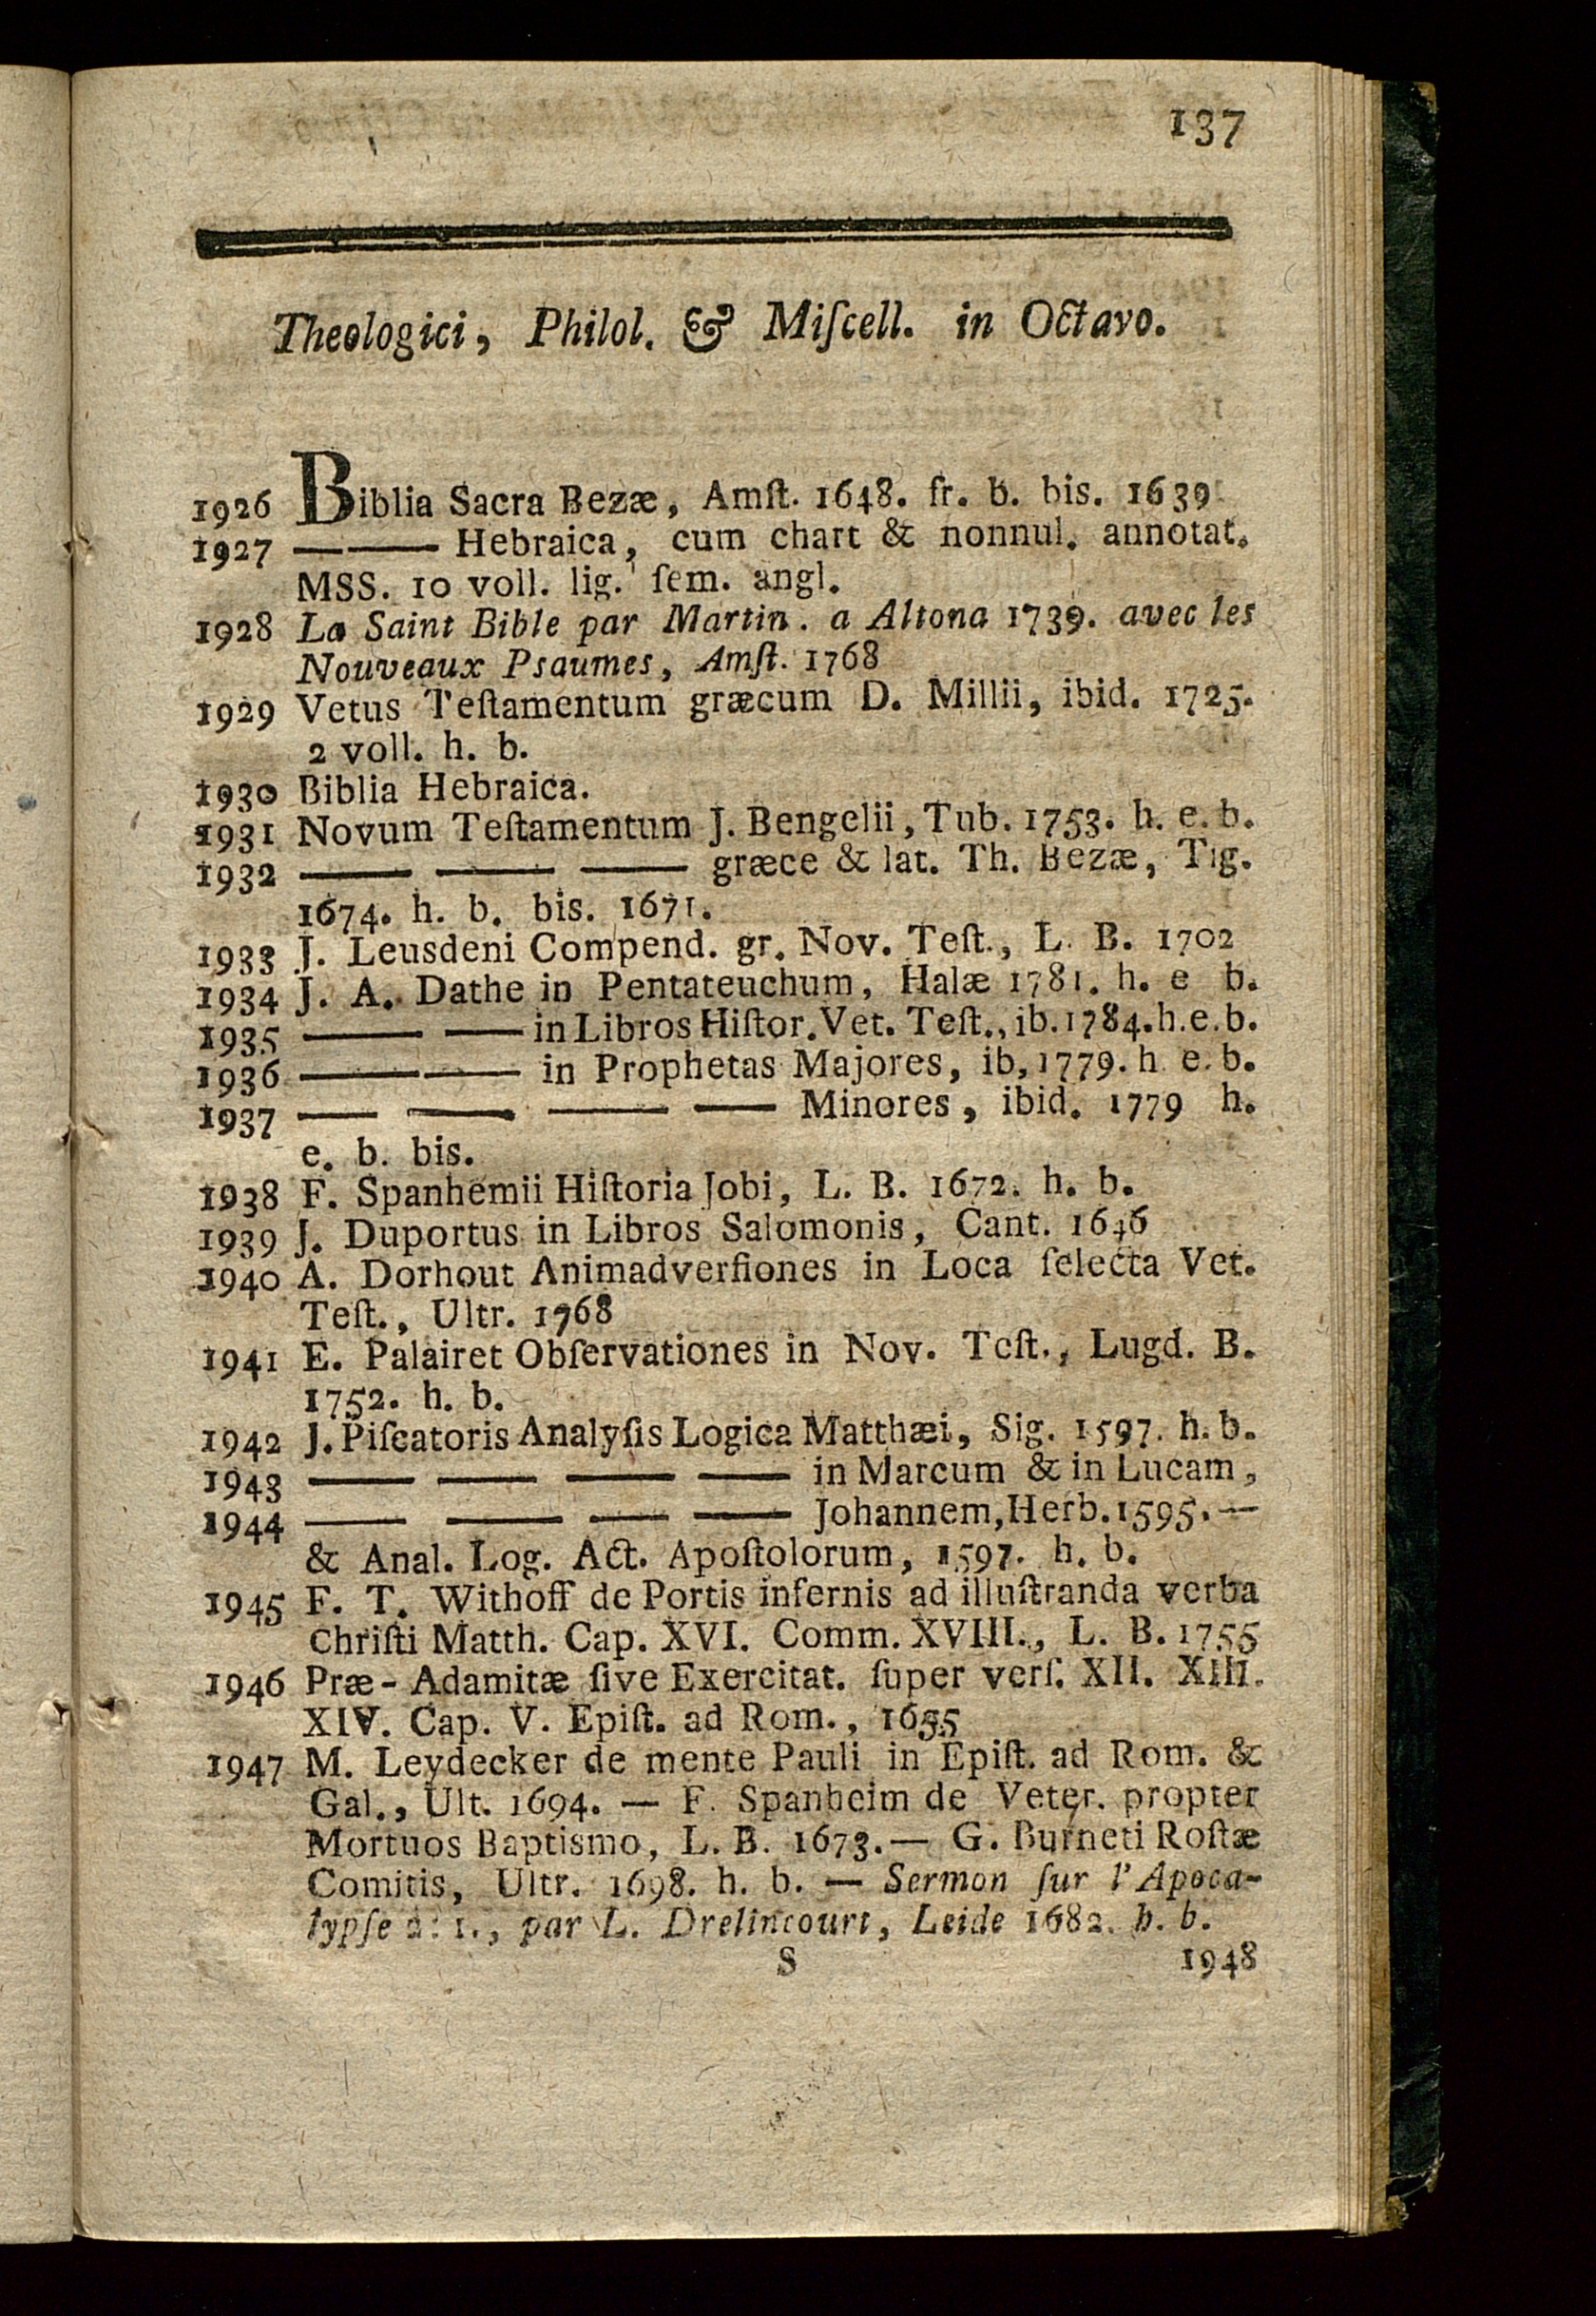 137
Theologici, Philol. & Miſcell. in Octavo.
1926 Biblia Sacra Bezæ, Amſt. 1648. fr. b. bis. 1639
1927 —— Hebraica, cum chart & nonnul. annotat.
MSS. 10 voll. lig. ſem. angl.
1928 La Saint Bible par Martin. a Altona 1739. avec les
Nouveaux Psaumes, Amſt. 1768
1929 Vetus Teſtamentum græcum D. Millii, ibid. 1725.
2 voll. h. b.
1930 Biblia Hebraica.
1931 Novum Teſtamentum J. Bengelii, Tub. 1753. h. e. b.
1932 — — — græce & lat. Th. Bezæ, Tig.
1674. h. b. bis. 1671.
1933 J. Leusdeni Compend. gr. Nov. Teſt., L. B. 1702
1934 J. A. Dathe in Pentateuchum, Halæ 1781. h. e b.
1935 — — in Libros Hiſtor. Vet. Teſt., ib. 1784. h. e. b.
1936 — — in Prophetas Majores, ib, 1779. h e. b.
1937 — — — — Minores, ibid. 1779 h.
e. b. bis.
1938 F. Spanhemii Hiſtoria Jobi, L. B. 1672. h. b.
1939 J. Duportus in Libros Salomonis, Cant. 1646
1940 A. Dorhout Animadverſiones in Loca ſelecta Vet.
Teſt., Ultr. 1768
1941 E. Palairet Obſervationes in Nov. Teſt., Lugd. B.
1752. h. b.
1942 J. Piſcatoris Analyſis Logica Matthæi, Sig. 1597. h. b.
1943 — — — — in Marcum & in Lucam,
1944 — — — — Johannem, Herb. 1595. —
& Anal. Log. Act. Apoſtolorum, 1597. h. b.
1945 F. T. Withoff de Portis infernis ad illuſtranda verba
Chriſti Matth. Cap. XVI. Comm. XVIII., L. B. 1755
1946 Præ-Adamitæ ſive Exercitat. ſuper verſ. XII. XIII.
XIV. Cap. V. Epiſt. ad Rom., 1655
1947 M. Leydecker de mente Pauli in Epiſt. ad Rom. &
Gal., Ult. 1694. — F. Spanheim de Veter. propter
Mortuos Baptismo, L. B. 1673. — G. Burneti Roſtæ
Comitis, Ultr. 1698. h. b. — Sermon ſur l'Apoca-
lypſe 2: 1., par L. Drelincourt, Leide 1682. h. b.
S 1948